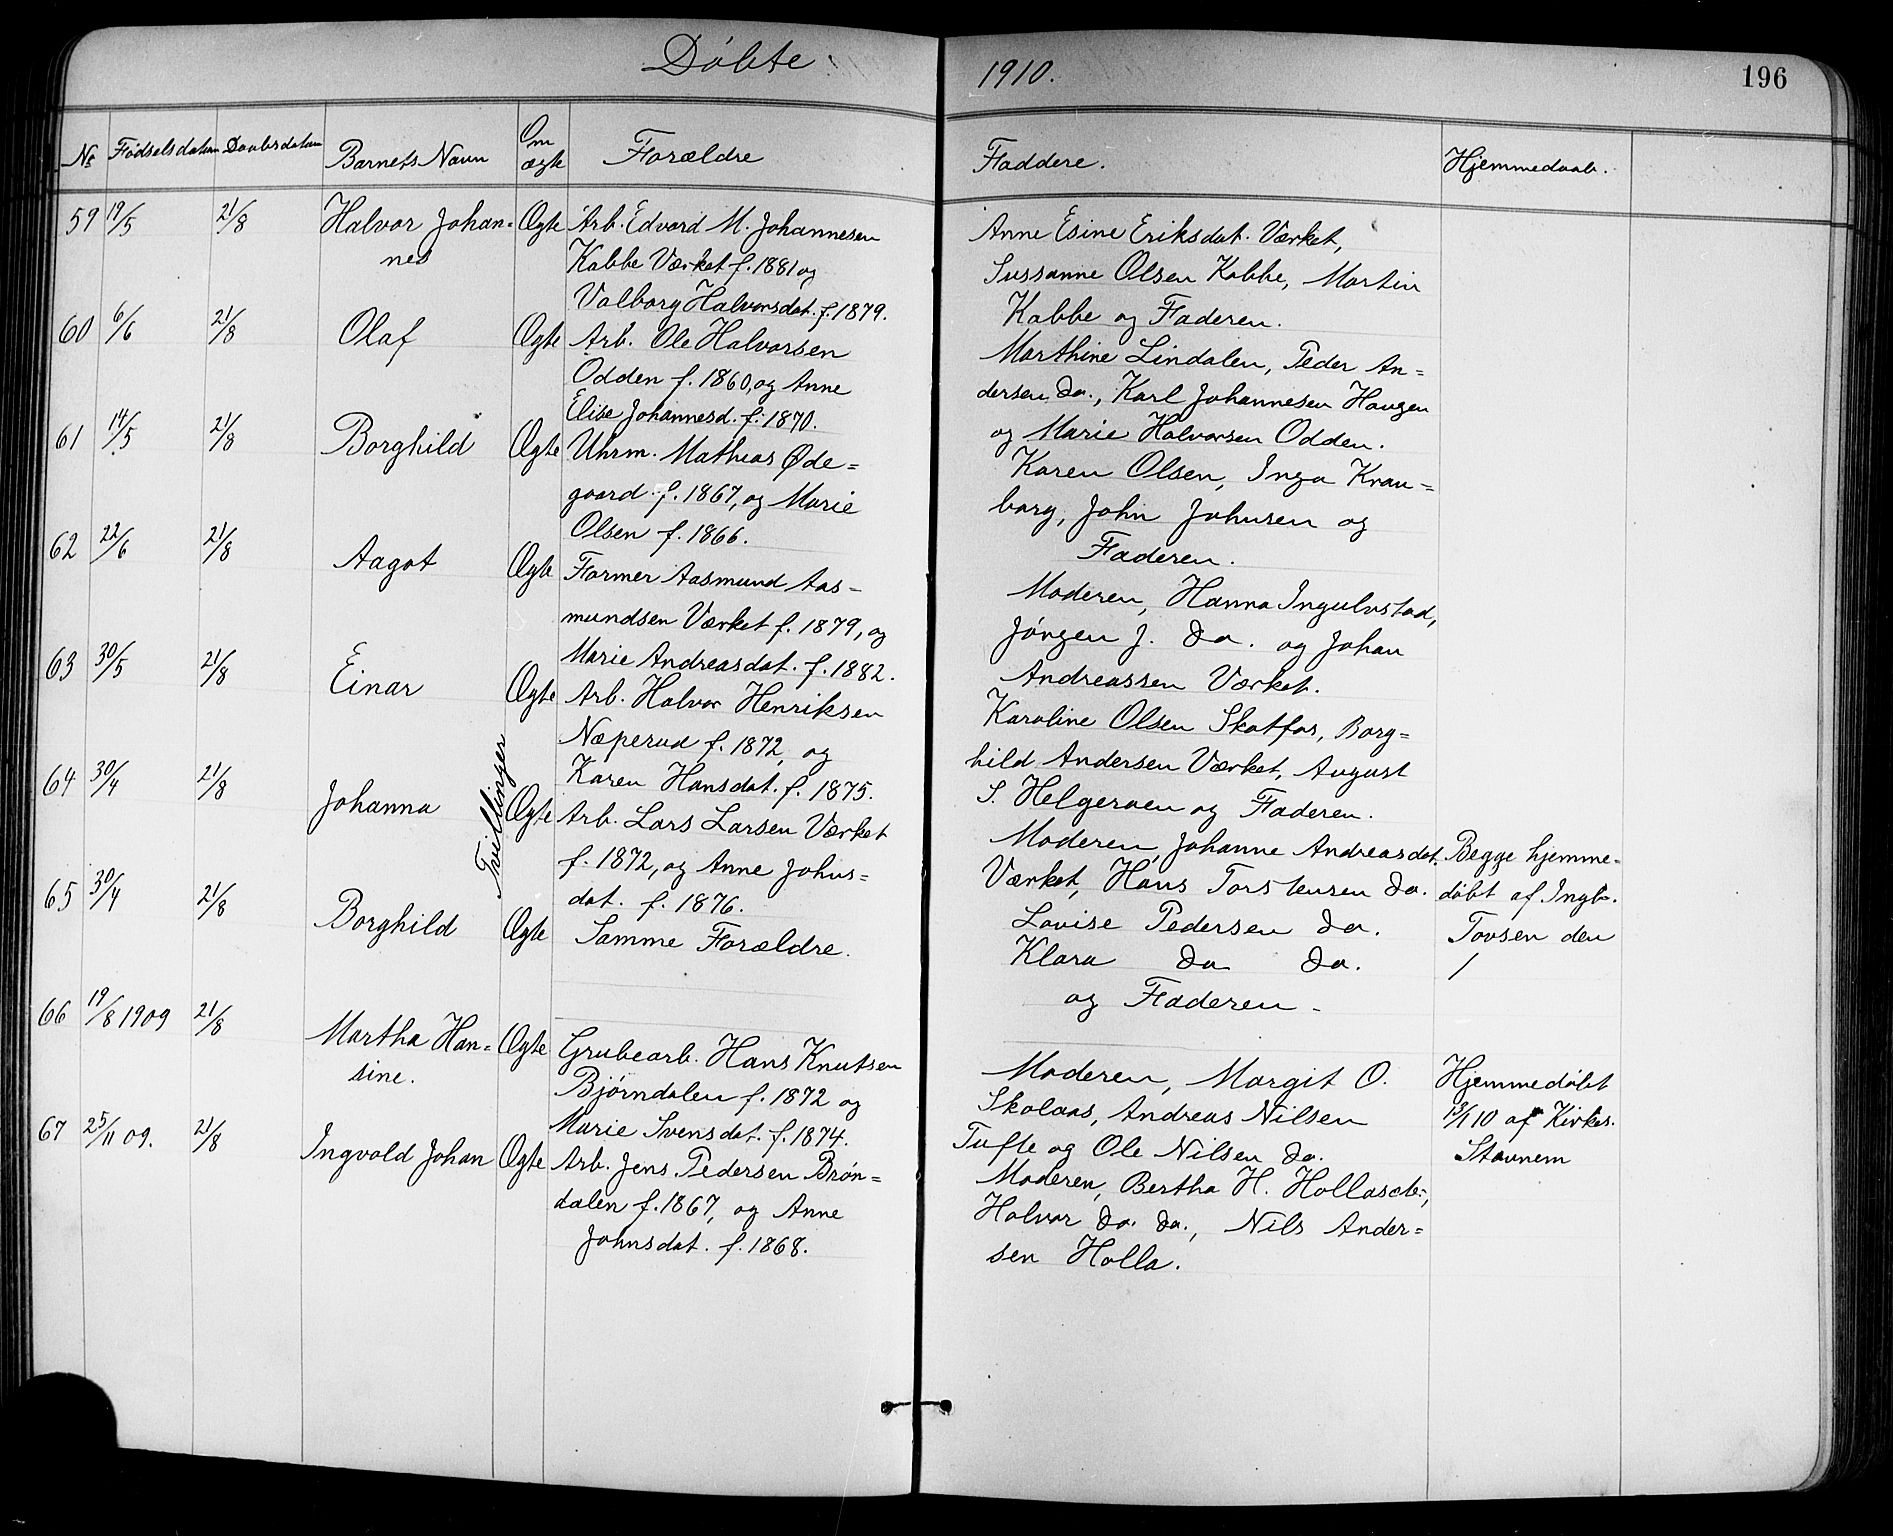 Döbte
1910.
196
No Fødselsdatum Daabsdatum Barnets Navn Om ægte Forældre
Faddere. Hjemmedaab.
59 19/5 21/8 Halvor Johan- Ægte Arb. Edvard M. Johannesen
nes Kabbe Værket f. 1881 og
Valborg Halvorsdat. f. 1879.
60 6/6 21/8 Olaf Ægte Arb. Ole Halvorsen
Odden f. 1860, og Anne
Elise Johannesd. f. 1870.
61 14/5 21/8 Borghild Ægte Uhrm. Mathias Øde=
gaard f. 1867, og Marie
Olsen f. 1866.
62 22/6 21/8 Aagot Ægte Former Aasmund Aas=
mundsen Værket f. 1879, og
Marie Andreasdat. f. 1882.
63 30/5 21/8 Einar Ægte Arb. Halvor Henriksen
Næperud f. 1872, og
Karen Hansdat. f. 1875.
64 30/4 21/8 Johanna Tvillinger Ægte Arb. Lars Larsen Værket
f. 1872, og Anne Johns=
dat. f. 1876.
65 30/4 21/8 Borghild Ægte Samme Forældre.
66 19/8 1909 21/8 Martha Han= Ægte Grubearb. Hans Knutsen
sine. Bjørndalen f. 1872 og
Marie Svensdat. f. 1874.
67 25/11 09. 21/8 Ingvald Johan Ægte Arb. Jens Pedersen Brøn=
dalen f. 1867, og Anne
Johnsdat. f. 1868.
Anne Esine Eriksdat. Værket,
Sussanne Olsen Kabbe, Martin
Kabbe og Faderen.
Marthine Lindalen, Peder An=
dersen do., Karl Johannesen Haugen
og Marie Halvorsen Odden.
Karen Olsen, Inga Krau=
borg, John Johnsen og
Faderen.
Moderen, Hanna Ingulvstad,
Jørgen J. do. og Johan
Andreassen Værket.
Karoline Olsen Skotfos, Borg=
hild Andersen Værket, August
S. Helgeroen og Faderen.
Moderen, Johanne Andreasdat. Begge hjemme=
Værket, Hans Torstensen do. døbt af Ingb.
Lovise Pedersen do. Tovsen den
Klara do do. /
og Faderen.
Moderen, Margit O. Hjemmedøbt
Skolaas, Andreas Nilsen 10 af Kirkes.
Tufte og Ole Nilsen do. Stavnem
Moderen, Bertha H. Hollasæte,
Halvor do. do., Nils Ander=
sen Holla.